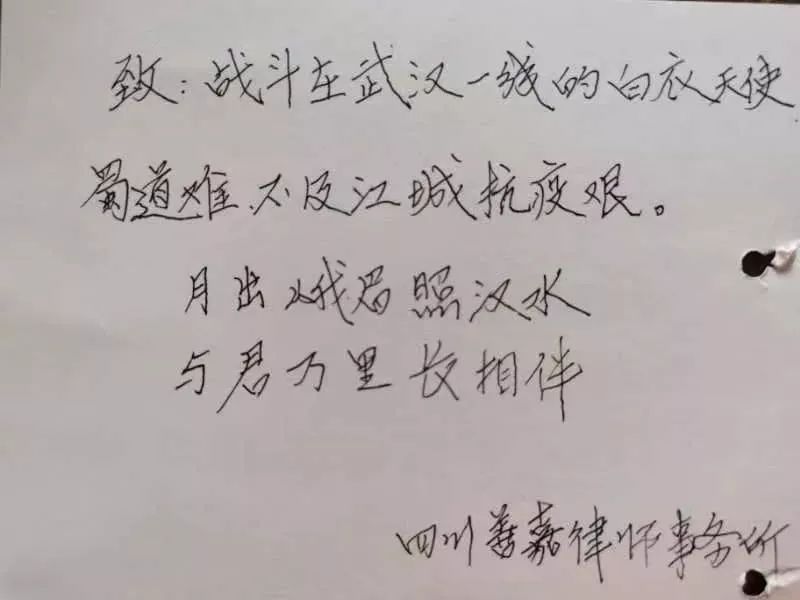 致：战斗在武汉一线的白衣天使
蜀道难不及江城抗疫艰。
月出峨眉照汉水
与君万里长相伴
四川善嘉律师事务所